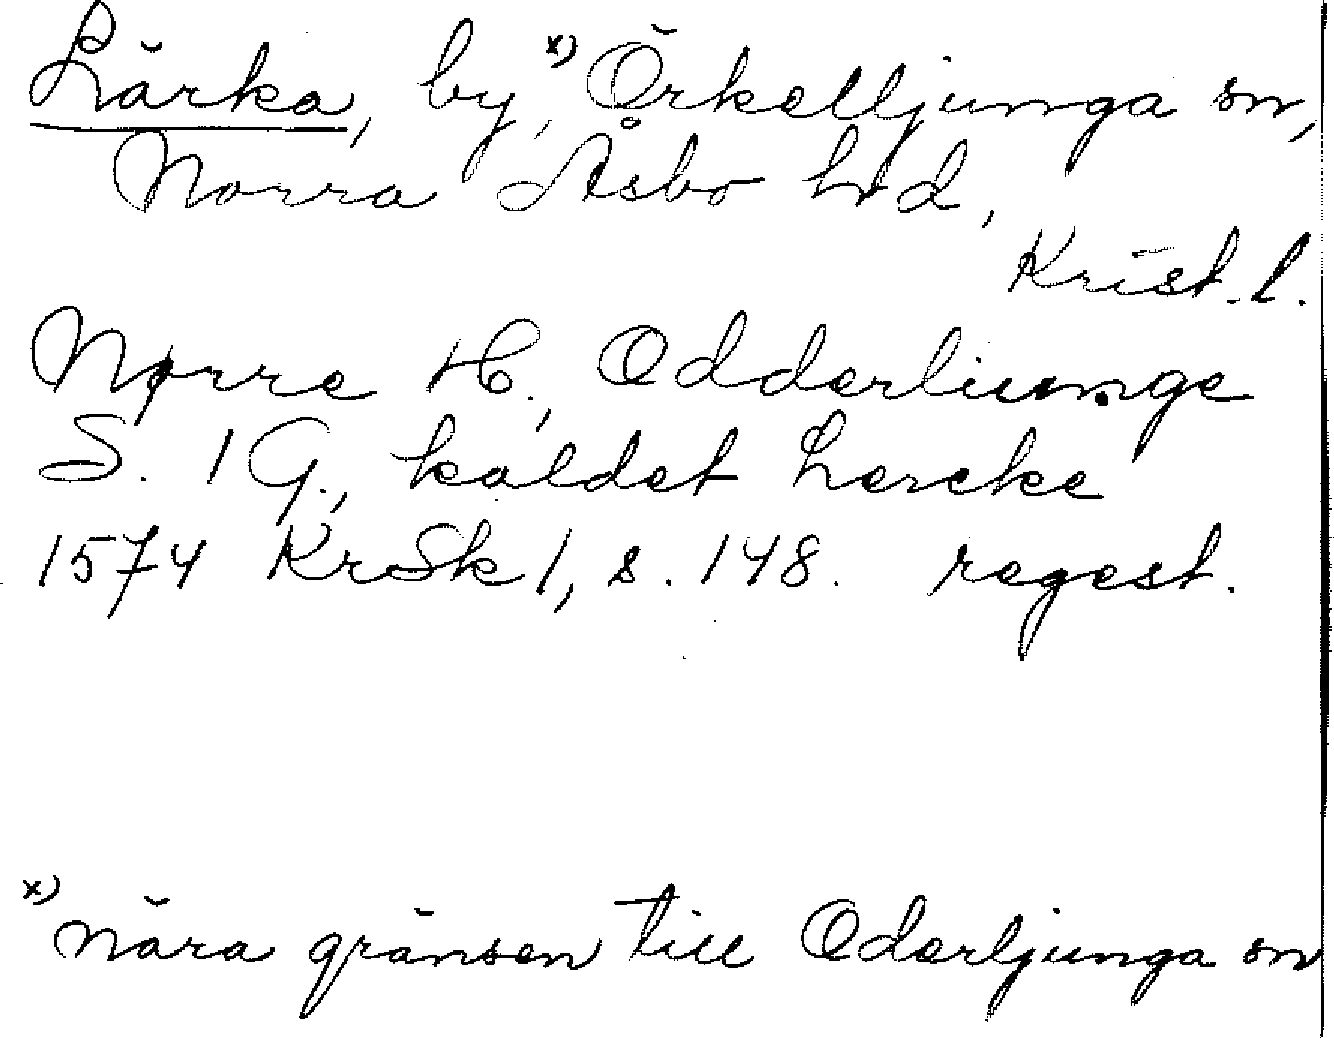 Lärka, by, x) Örkelljunga sn,
Norra Åsbo hd,
Krist. l.
Nørre H., Odderliunge
S. 1 G., kaldet Lercke
1574 KrSk 1, s. 148. regest.
x) nära gränsen till Oderljunga sn